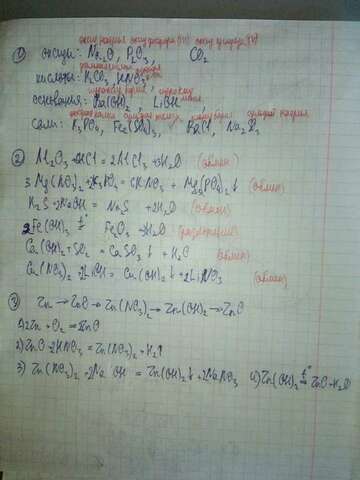 оксид натрия оксид фосфора (V) оксид углерода (IV)
① оксиды: Na₂O, P₂O₅, CO₂
кислоты: HNO₃
основания: Ba(OH)₂, LiOH
соли: K₃PO₄, Fe₂(SO₄)₃, BaCl, Na₂S
② Al₂O₃ + HCl = 2AlCl₃ + H₂O (обмен)
3 Mg(NO₃)₂ + K₃PO₄ = 6KNO₃ + Mg₃(PO₄)₂↓ (обмен)
K₂S + NaOH = Na₂S + 2H₂O (обмен)
2Fe(OH)₃ t° = Fe₂O₃ + H₂O (разложение)
Ca(OH)₂ + SO₂ = CaSO₃↓ + H₂O (обмен)
Ca(NO₃)₂ + 2LiOH = Ca(OH)₂↓ + 2LiNO₃ (обмен)
③ Zn → ZnO → Zn(NO₃)₂ → Zn(OH)₂ → ZnO
1) 2Zn + O₂ = 2ZnO
2) ZnO + 2HNO₃ = Zn(NO₃)₂ + H₂↑
3) Zn(NO₃)₂ + 2NaOH = Zn(OH)₂↓ + 2NaNO₃ 4) Zn(OH)₂ t° = ZnO + H₂O